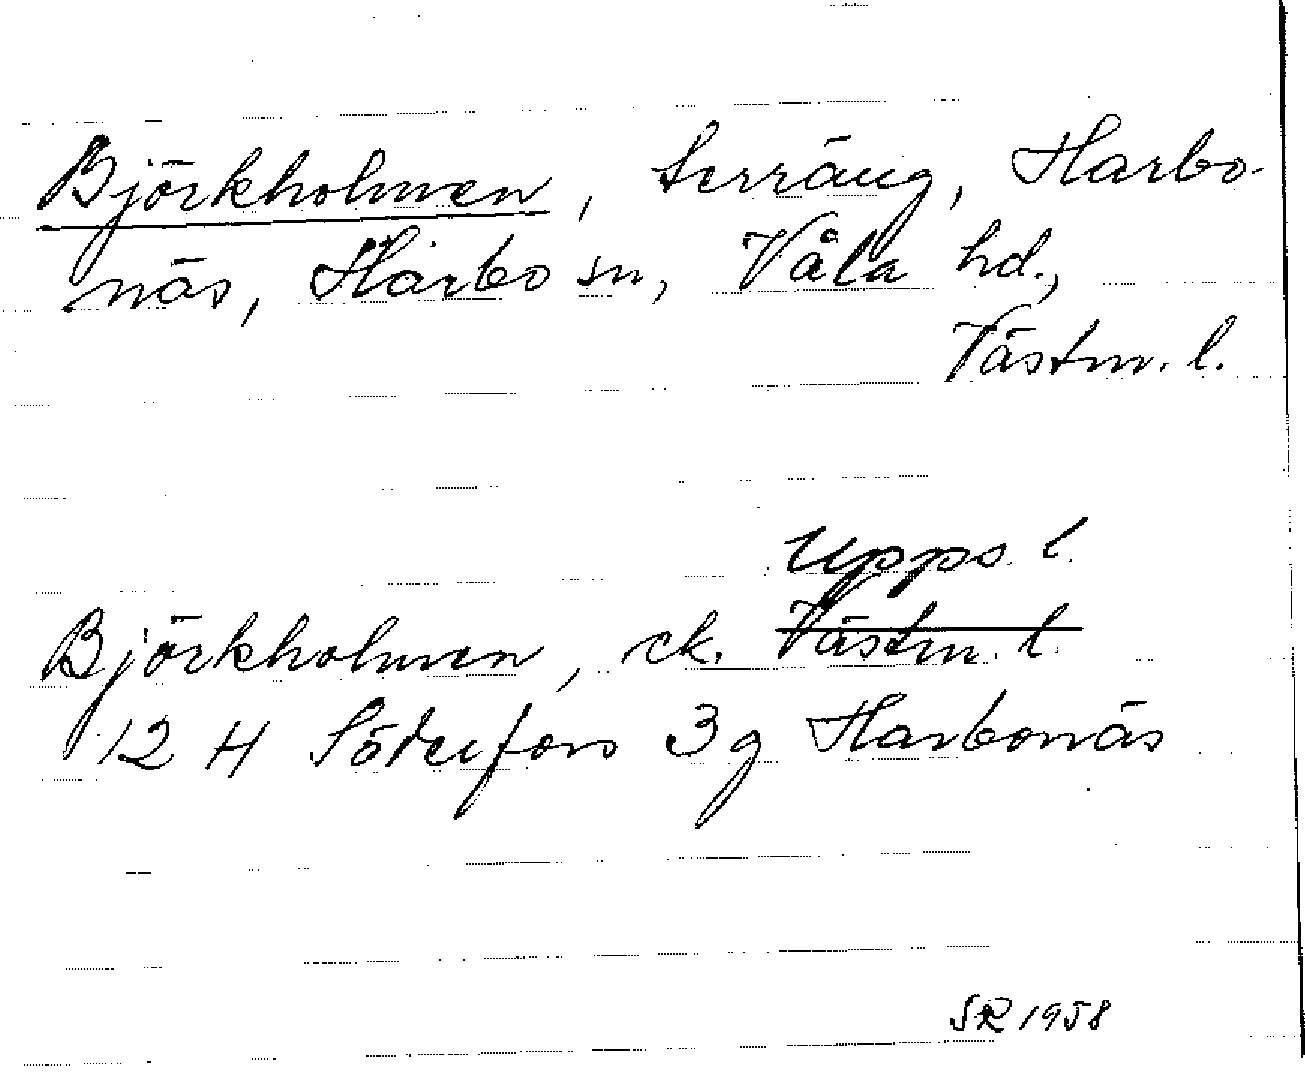 Björkholmen, terräng, Harbo-
näs, Harbo sn, Våla hd.,
Västm. l.
Upps. l.
Björkholmen, ek. Västm. l.
12 H Söderfors 3g Harbonäs
SR 1958